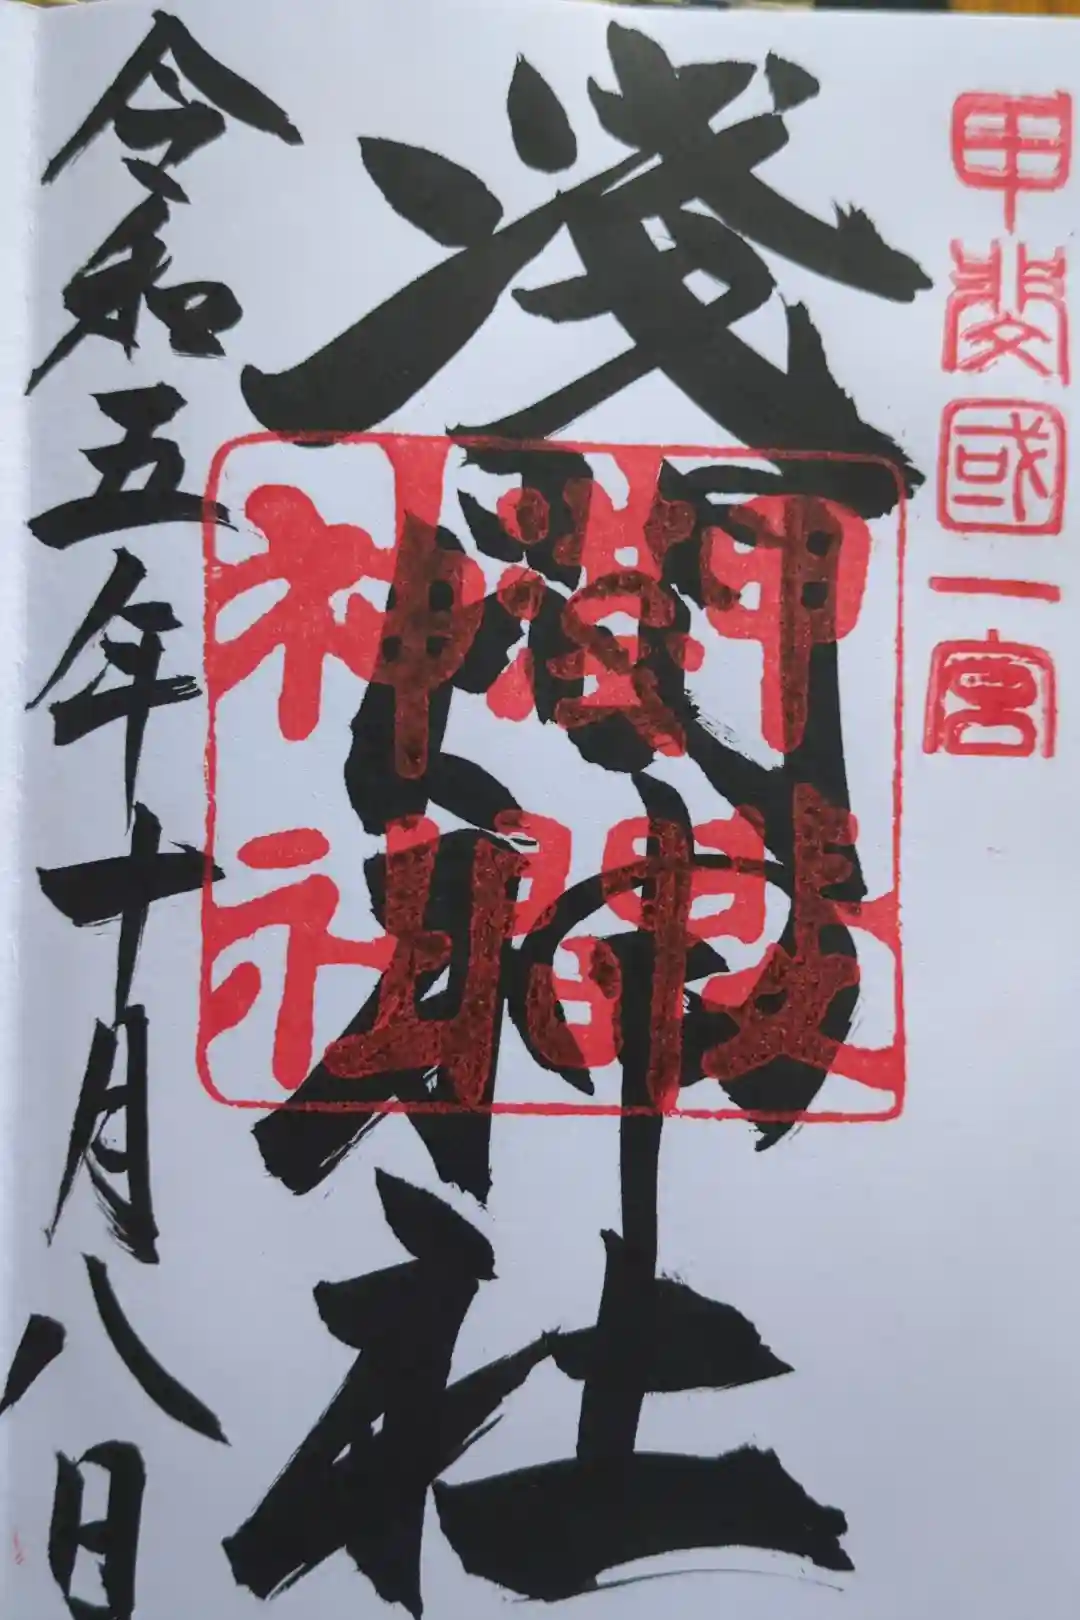 甲斐國一宮
浅間神社
甲斐浅間神社
令和五年十月八日